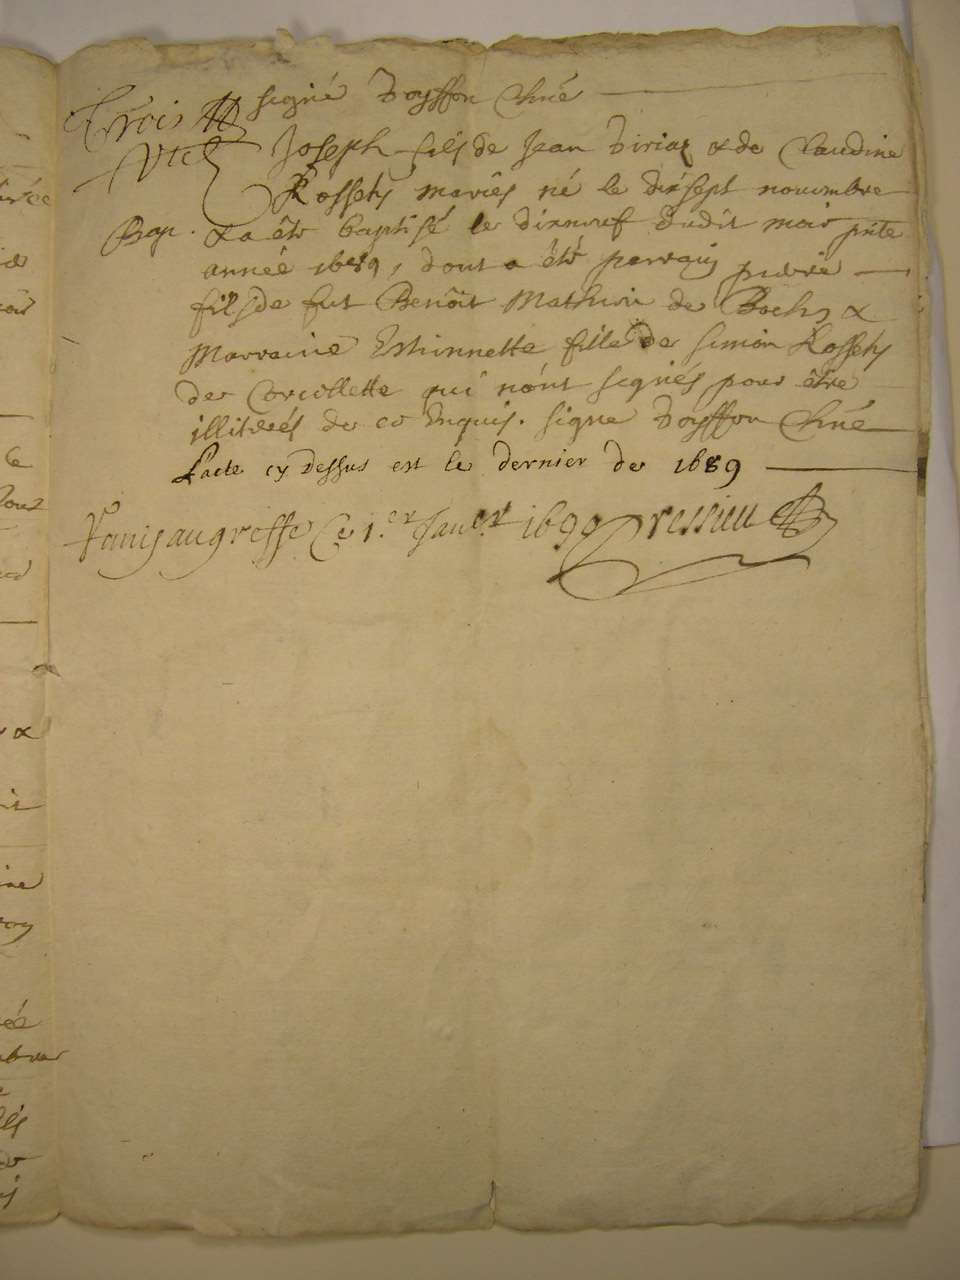 signé Doyffon Curé
Trois
Joseph fils de Jean Diriaz & de Claudine
Rossets mariés né le dixsept nouembre
Bap. & a été baptisé le dixneuf dudit mois pnte
année 1689, dont a été parrain pierre
fils de fut Benôit Mathieu de Boches &
Marraine Estiennette fille de Simon Rossets
de Corcellette qui n'ont signés pour être
illiterés de ce Enquis. signe Doyffon Curé
L'acte cy dessus est le dernier de 1689
au greffe Ce 1.er Janer 1690 Pressieu